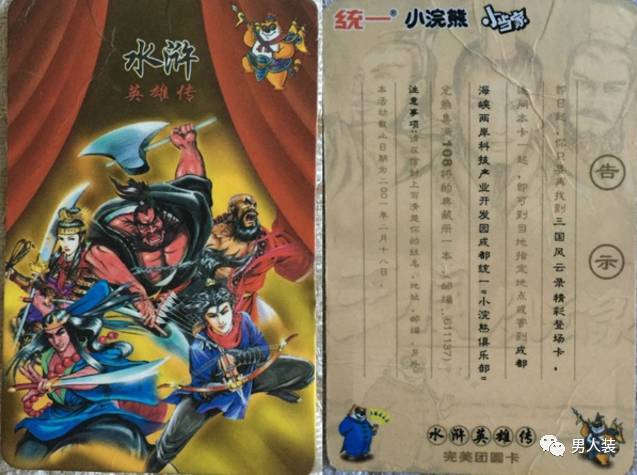 水浒
英雄传
统一®
小浣熊
小当家
告示
即日起，你只要再找到三国风云录精彩登场卡，
连同本卡一起，即可到当地指定地点或寄到成都
海峡两岸科技产业开发园成都统一“小浣熊俱乐部”
集满108将的典藏册一本。邮编：(611137)
注意事项：请在信封上写清楚你的姓名、地址、邮编，
本活动截止日期为二〇〇一年二月十八日。
水浒英雄传
完美团圆卡
男人装